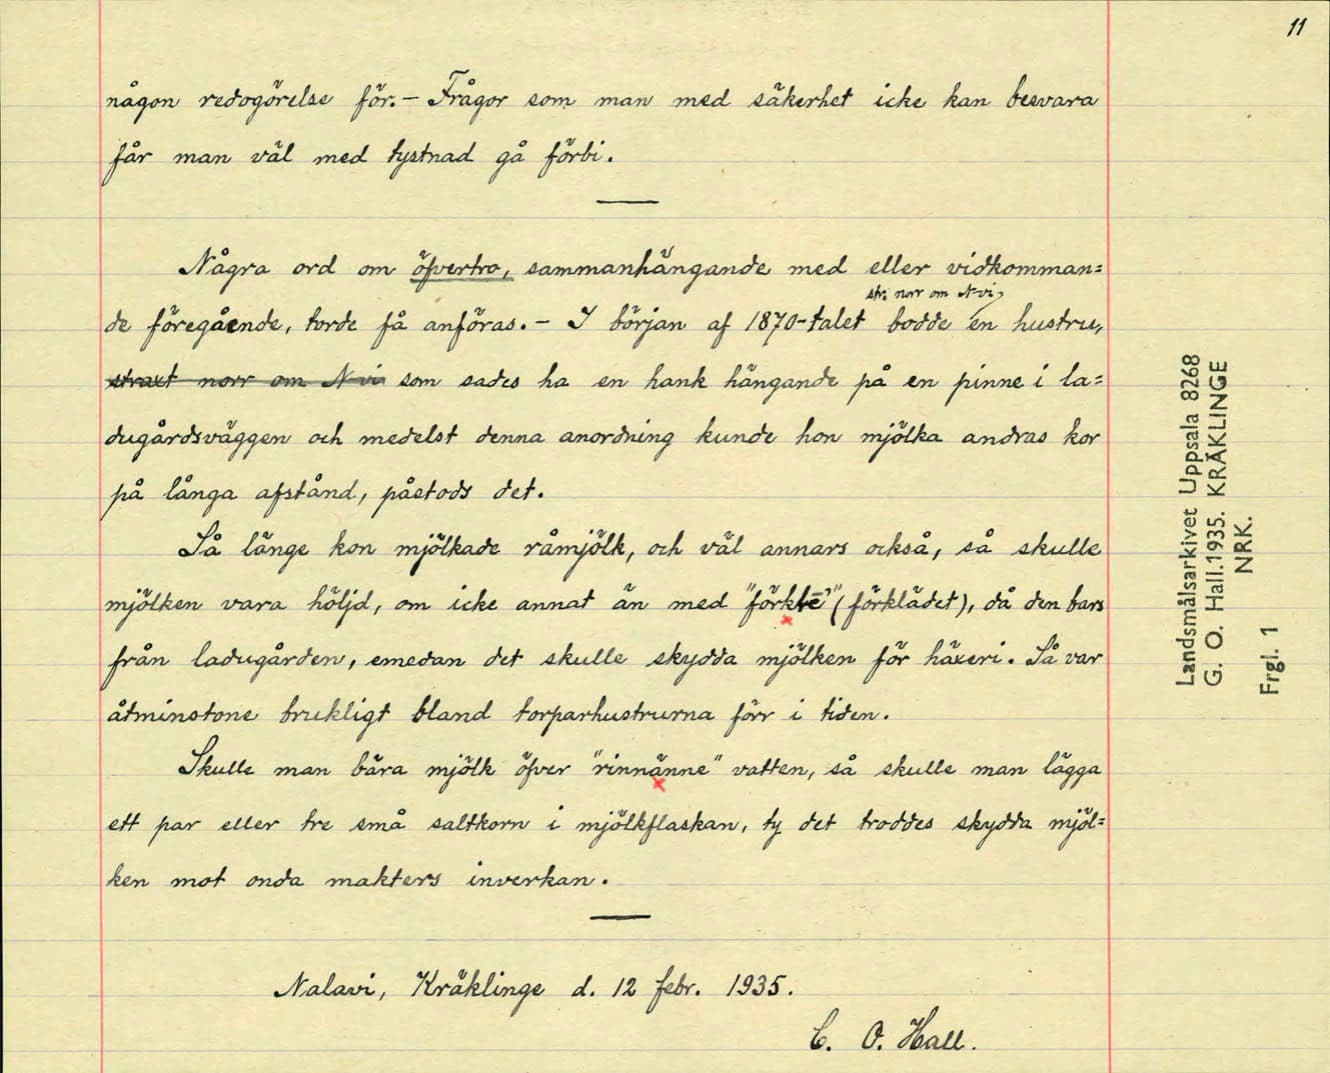 11
någon redogörelse för. – Frågor som man med säkerhet icke kan besvara
får man väl med tystnad gå förbi.
Några ord om öfvertro, sammanhängande med eller vidkomman=
str. norr om N-vi,
de föregående, torde få anföras. – I början af 1870-talet bodde en hustru,
straxt norr om N-vi som sades ha en hank hängande på en pinne i la=
dugårdsväggen och medelst denna anordning kunde hon mjölka andras kor
på långa afstånd, påstods det.
Så länge kon mjölkade råmjölk, och väl annars också, så skulle
mjölken vara höljd, om icke annat än med "förkle" (förklädet), då den bars
från ladugården, emedan det skulle skydda mjölken för häxeri. Så var
åtminstone brukligt bland torparhustrurna förr i tiden.
Skulle man bära mjölk öfver "rinnänne" vatten, så skulle man lägga
ett par eller tre små saltkorn i mjölkflaskan, ty det troddes skydda mjöl=
ken mot onda makters inverkan.
Nalavi, Kräklinge d. 12 febr. 1935.
C. O. Hall.
Landsmålsarkivet Uppsala 8268
G. O. Hall. 1935. KRÄKLINGE
NRK.
Frgl. 1